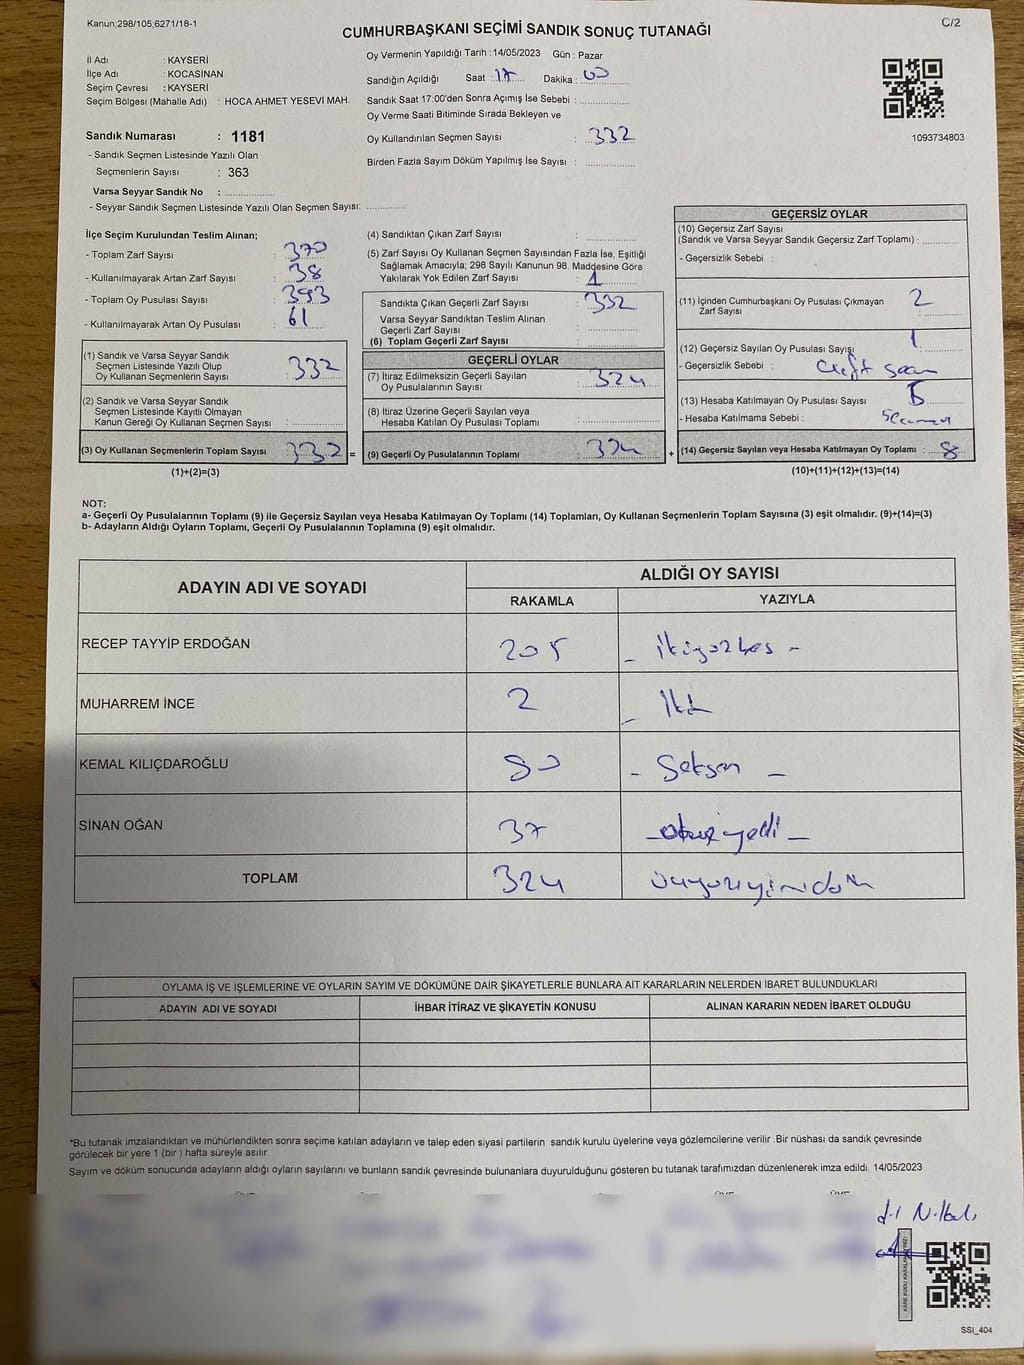 Kanun;298/105,6271/18-1
C/2
CUMHURBAŞKANI SEÇİMİ SANDIK SONUÇ TUTANAĞI
İl Adı : KAYSERİ
İlçe Adı : KOCASİNAN
Seçim Çevresi : KAYSERİ
Seçim Bölgesi (Mahalle Adı) : HOCA AHMET YESEVİ MAH.
Sandık Numarası : 1181
- Sandık Seçmen Listesinde Yazılı Olan
Seçmenlerin Sayısı : 363
Varsa Seyyar Sandık No :
- Seyyar Sandık Seçmen Listesinde Yazılı Olan Seçmen Sayısı:
Oy Vermenin Yapıldığı Tarih : 14/05/2023 Gün : Pazar
Sandığın Açıldığı Saat : 17 Dakika : 00
Sandık Saat 17:00'den Sonra Açımış İse Sebebi :
Oy Verme Saati Bitiminde Sırada Bekleyen ve
Oy Kullandırılan Seçmen Sayısı : 332
Birden Fazla Sayım Döküm Yapılmış İse Sayısı :
1093734803
İlçe Seçim Kurulundan Teslim Alınan;
- Toplam Zarf Sayısı : 370
- Kullanılmayarak Artan Zarf Sayısı : 38
- Toplam Oy Pusulası Sayısı : 393
- Kullanılmayarak Artan Oy Pusulası : 61
(1) Sandık ve Varsa Seyyar Sandık
Seçmen Listesinde Yazılı Olup
Oy Kullanan Seçmenlerin Sayısı : 332
(2) Sandık ve Varsa Seyyar Sandık
Seçmen Listesinde Kayıtlı Olmayan
Kanun Gereği Oy Kullanan Seçmen Sayısı :
(3) Oy Kullanan Seçmenlerin Toplam Sayısı : 332 =
(1)+(2)=(3)
(4) Sandıktan Çıkan Zarf Sayısı :
(5) Zarf Sayısı Oy Kullanan Seçmen Sayısından Fazla İse, Eşitliği
Sağlamak Amacıyla; 298 Sayılı Kanunun 98. Maddesine Göre
Yakılarak Yok Edilen Zarf Sayısı : 1
Sandıkta Çıkan Geçerli Zarf Sayısı : 332
Varsa Seyyar Sandıktan Teslim Alınan
Geçerli Zarf Sayısı :
(6) Toplam Geçerli Zarf Sayısı :
GEÇERLİ OYLAR
(7) İtiraz Edilmeksizin Geçerli Sayılan
Oy Pusulalarının Sayısı : 324
(8) İtiraz Üzerine Geçerli Sayılan veya
Hesaba Katılan Oy Pusulası Toplamı :
(9) Geçerli Oy Pusulalarının Toplamı : 324 +
GEÇERSİZ OYLAR
(10) Geçersiz Zarf Sayısı
(Sandık ve Varsa Seyyar Sandık Geçersiz Zarf Toplamı) :
- Geçersizlik Sebebi :
(11) İçinden Cumhurbaşkanı Oy Pusulası Çıkmayan
Zarf Sayısı : 2
(12) Geçersiz Sayılan Oy Pusulası Sayısı 1
- Geçersizlik Sebebi :
(13) Hesaba Katılmayan Oy Pusulası Sayısı 5
- Hesaba Katılmama Sebebi :
(14) Geçersiz Sayılan veya Hesaba Katılmayan Oy Toplamı : 8
(10)+(11)+(12)+(13)=(14)
NOT:
a- Geçerli Oy Pusulalarının Toplamı (9) ile Geçersiz Sayılan veya Hesaba Katılmayan Oy Toplamı (14) Toplamları, Oy Kullanan Seçmenlerin Toplam Sayısına (3) eşit olmalıdır. (9)+(14)=(3)
b- Adayların Aldığı Oyların Toplamı, Geçerli Oy Pusulalarının Toplamına (9) eşit olmalıdır.
ADAYIN ADI VE SOYADI
ALDIĞI OY SAYISI
RAKAMLA YAZIYLA
RECEP TAYYİP ERDOĞAN 205 - ikiyüzbes -
MUHARREM İNCE 2 - iki
KEMAL KILIÇDAROĞLU 80 - Seksen -
SİNAN OĞAN 37 - otuzyedi -
TOPLAM 324
OYLAMA İŞ VE İŞLEMLERİNE VE OYLARIN SAYIM VE DÖKÜMÜNE DAİR ŞİKAYETLERLE BUNLARA AİT KARARLARIN NELERDEN İBARET BULUNDUKLARI
ADAYIN ADI VE SOYADI İHBAR İTİRAZ VE ŞİKAYETİN KONUSU ALINAN KARARIN NEDEN İBARET OLDUĞU
*Bu tutanak imzalandıktan ve mühürlendikten sonra seçime katılan adayların ve talep eden siyasi partilerin sandık kurulu üyelerine veya gözlemcilerine verilir .Bir nüshası da sandık çevresinde
görülecek bir yere 1 (bir ) hafta süreyle asılır.
Sayım ve döküm sonucunda adayların aldığı oyların sayılarını ve bunların sandık çevresinde bulunanlara duyurulduğunu gösteren bu tutanak tarafımızdan düzenlenerek imza edildi. 14/05/2023
SSI_404